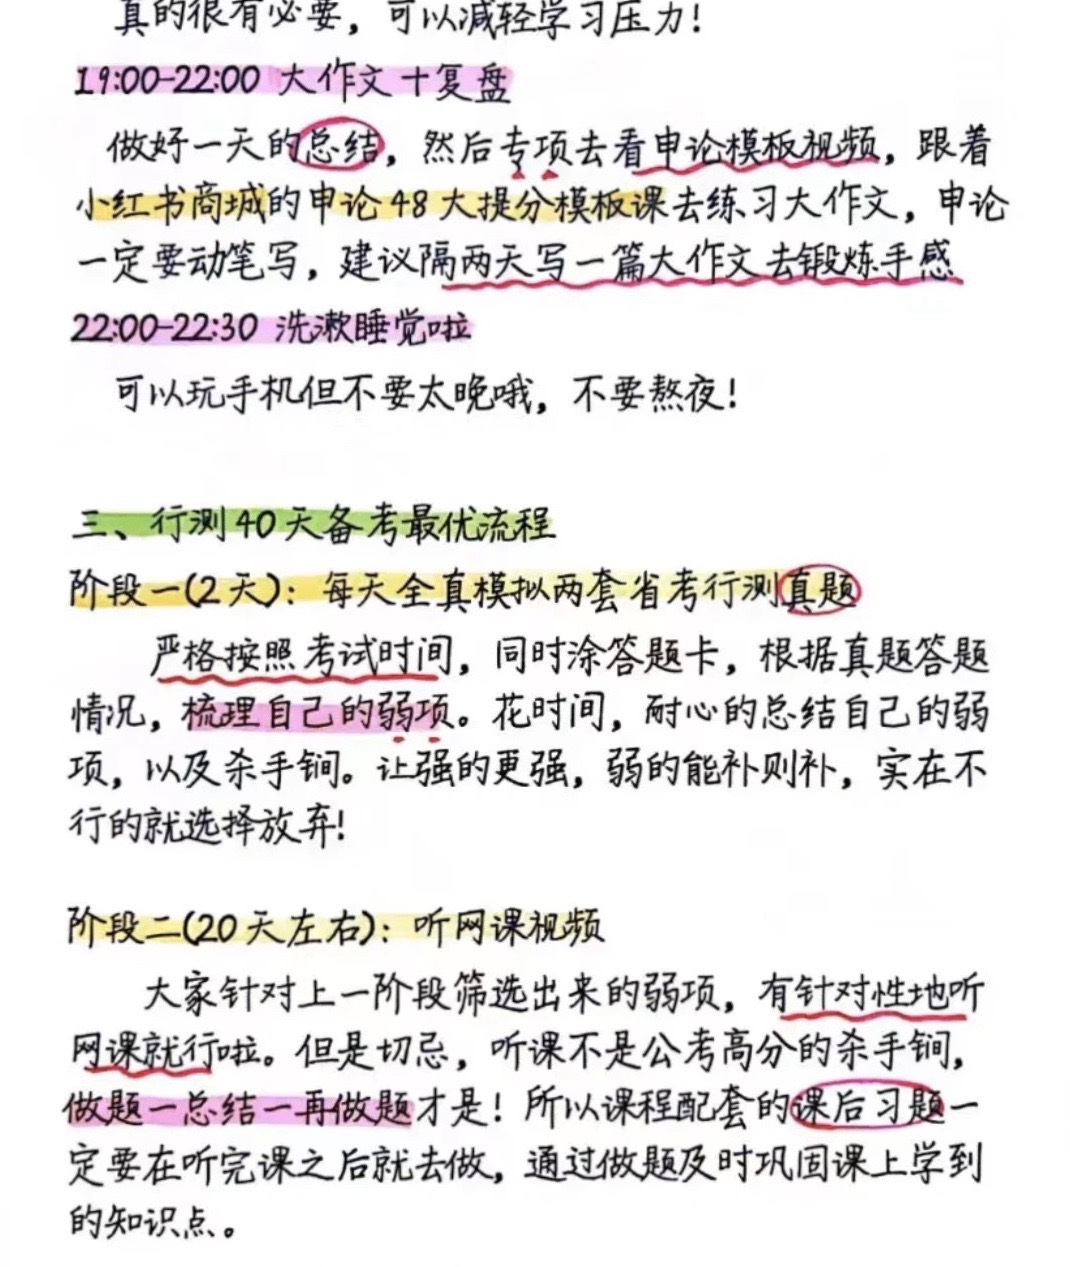 真的很有必要，可以减轻学习压力！
19:00-22:00 大作文十复盘
做好一天的总结，然后专项去看申论模板视频，跟着
小红书商城的申论48大提分模板课去练习大作文，申论
一定要动笔写，建议隔两天写一篇大作文去锻炼手感
22:00-22:30 洗漱睡觉啦
可以玩手机但不要太晚哦，不要熬夜！
三、行测40天备考最优流程
阶段一(2天)：每天全真模拟两套省考行测真题
严格按照考试时间，同时涂答题卡，根据真题答题
情况，梳理自己的弱项。花时间，耐心的总结自己的弱
项，以及杀手锏。让强的更强，弱的能补则补，实在不
行的就选择放弃！
阶段二(20天左右)：听网课视频
大家针对上一阶段筛选出来的弱项，有针对性地听
网课就行啦。但是切忌，听课不是公考高分的杀手锏，
做题一总结一再做题才是！所以课程配套的课后习题一
定要在听完课之后就去做，通过做题及时巩固课上学到
的知识点。